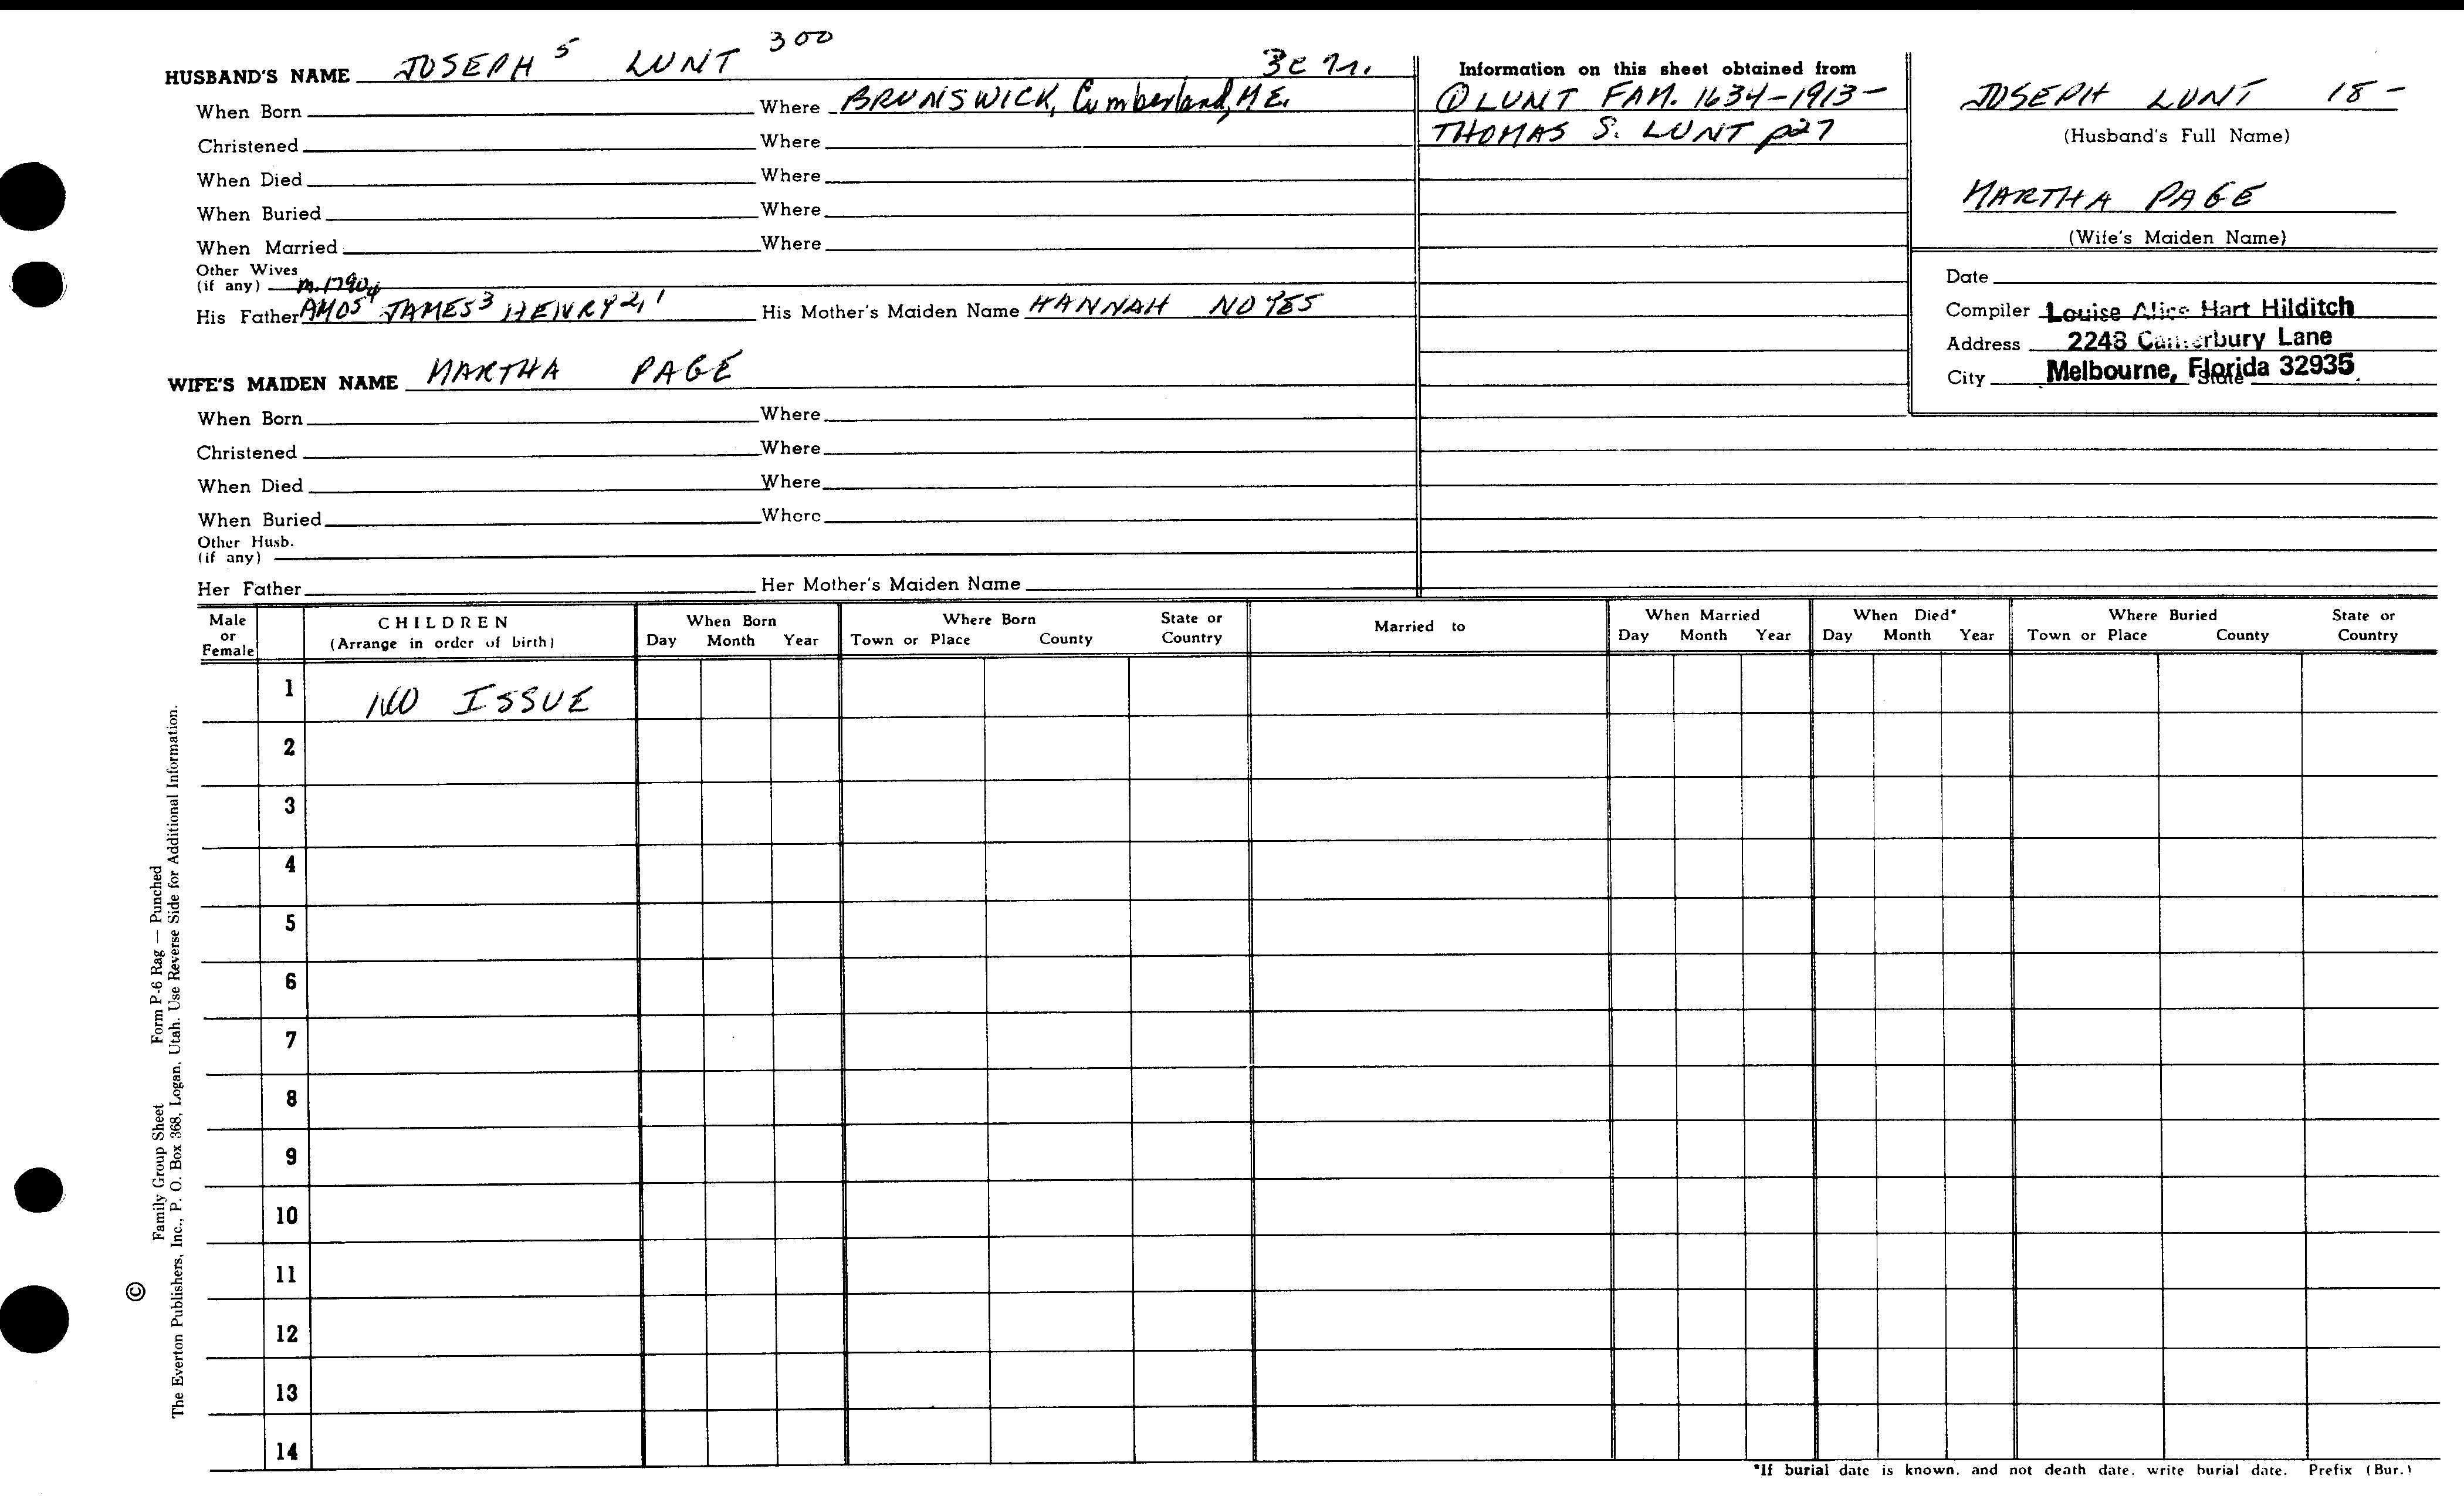 HUSBAND'S NAME JOSEPH 5 LUNT 300
When Born Where BRUNSWICK, Cumberland, ME.
Christened Where
When Died Where
When Buried Where
When Married Where
Other Wives
(if any) m. 1790
His Father AMOS4 JAMES3 HENRY2,1 His Mother's Maiden Name HANNAH NOYES
WIFE'S MAIDEN NAME MARTHA PAGE
When Born Where
Christened Where
When Died Where
When Buried Where
Other Husb.
(if any)
Her Father Her Mother's Maiden Name
Information on this sheet obtained from
① LUNT FAM. 1634-1913-
THOMAS S. LUNT p27
JOSEPH LUNT 18-
(Husband's Full Name)
MARTHA PAGE
(Wife's Maiden Name)
Date
Compiler Louise Alice Hart Hilditch
Address 2248 Canterbury Lane
City Melbourne, Florida 32935 State
Male or Female
CHILDREN
(Arrange in order of birth)
When Born
Day Month Year
Where Born
Town or Place County State or Country
Married to
When Married
Day Month Year
When Died*
Day Month Year
Where Buried
Town or Place County State or Country
1 NO ISSUE
2
3
4
5
6
7
8
9
10
11
12
13
14
*If burial date is known, and not death date, write burial date. Prefix (Bur.)
© Family Group Sheet Form P-6 Rag — Punched
The Everton Publishers, Inc., P. O. Box 368, Logan, Utah. Use Reverse Side for Additional Information.